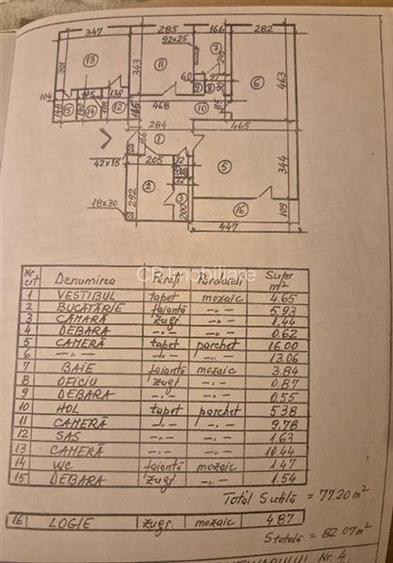 347 285 166 282
92×25
13 11 7 6
301 343 463
60 97
104 115 139 468 10 115
15 14 12
284 465
1
42×15 205 5 344
2
18×30 292 3 16 109
200
447
Nr. crt Denumirea Pereți Pardoseli Supr. m²
1 VESTIBUL tapet mozaic 4.65
2 BUCĂTĂRIE faianță -"- 5.93
3 CĂMARĂ zugr -"- 1.44
4 DEBARA -"- -"- 0.62
5 CAMERĂ tapet parchet 16.00
6 -"- -"- -"- 13.06
7 BAIE faianță mozaic 3.84
8 OFICIU zugr -"- 0.87
9 DEBARA -"- -"- 0.55
10 HOL tapet parchet 5.38
11 CAMERĂ -"- -"- 9.78
12 SAS -"- -"- 1.63
13 CAMERĂ -"- -"- 10.44
14 WC faianță mozaic 1.47
15 DEBARA zugr -"- 1.54
Total S utilă = 77.20 m²
16 LOGIE zugr. mozaic 4.87
S totală = 82.07 m²
Nr. 4